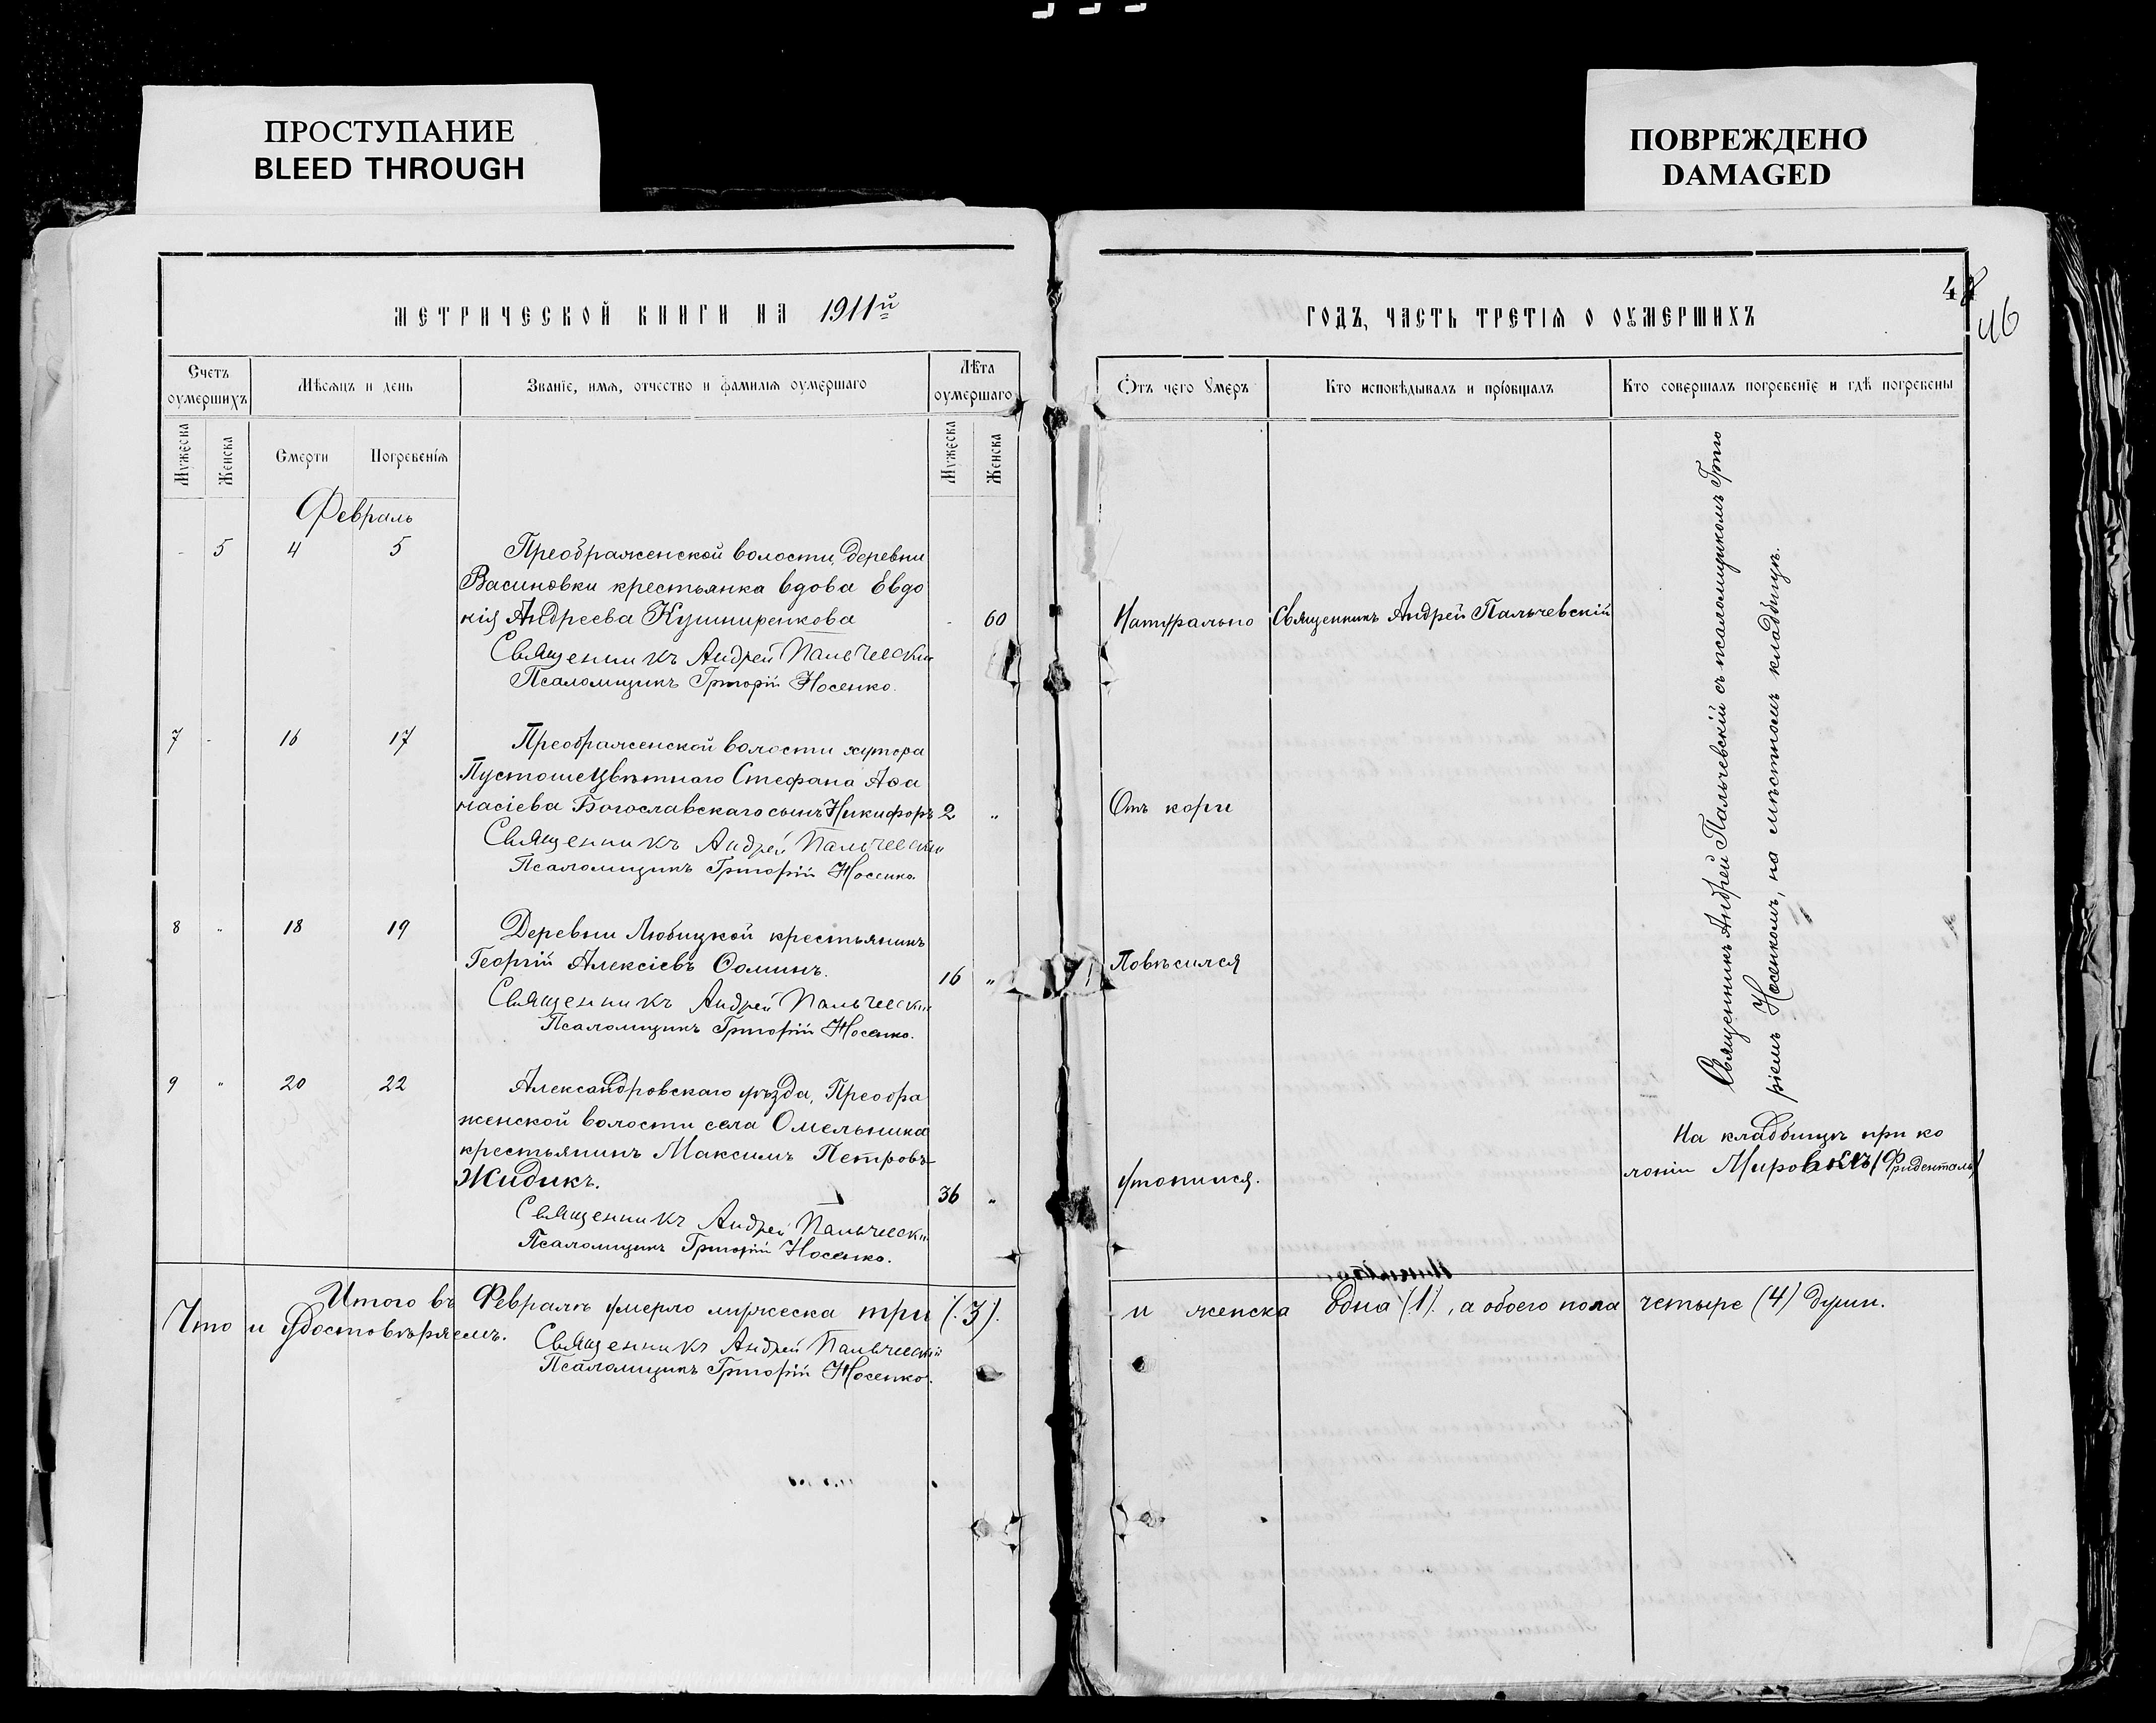 ПРОСТУПАНИЕ
BLEED THROUGH
ПОВРЕЖДЕНО
DAMAGED
МЕТРИЧЕСКОЙ КНИГИ НА 1911й
Счетъ оумершихъ
Мѣсяцъ и день
Званіе, имя, отчество и фамилія оумершаго
Лѣта оумершаго
Мужеска
Женска
Смерти
Погребенія
Мужеска
Женска
Февраль
- 5 4 5 Преображенской волости, деревни
Васиновки крестьянка вдова Евдо
кія Андреева Кушниренкова - 60
Священникъ Андрей Пальчевскій
Псаломщикъ Григорій Носенко.
7 - 16 17 Преображенской волости хутора
Пустошецвѣтнаго Стефана Аѳа
насіева Богославскаго сынъ Никифоръ 2 "
Священникъ Андрей Пальчевскій
Псаломщикъ Григорій Носенко
8 " 18 19 Деревни Любицкой крестьянинъ
Георгій Алексіевъ Ѳоминъ. 16 "
Священникъ Андрей Пальчевскій
Псаломщикъ Григорій Носенко.
9 " 20 22 Александровскаго уѣзда, Преобра
женской волости села Омельника
крестьянинъ Максимъ Петровъ
Жидикъ. 36 "
Священникъ Андрей Пальчевскій
Псаломщикъ Григорій Носенко.
Итого въ Февралѣ умерло мужеска три (3).
Что и удостовѣряемъ.
Священникъ Андрей Пальчевскій
Псаломщикъ Григорій Носенко.
46
ГОДЪ, ЧАСТЬ ТРЕТІЯ О ОУМЕРШИХЪ
Отъ чего умеръ
Кто исповѣдывалъ и пріобщалъ
Кто совершалъ погребеніе и гдѣ погребены
Натурально Священникъ Андрей Пальчевскій
Отъ кори
Повѣсился
утопился.
Священникъ Андрей Пальчевскій съ псаломщикомъ Григо
ріемъ Носенкомъ, на мѣстномъ кладбищѣ.
На кладбищѣ при ко
лоніи Мировкѣ (Фриденталь)
и женска одна (1), а обоего пола четыре (4) души.